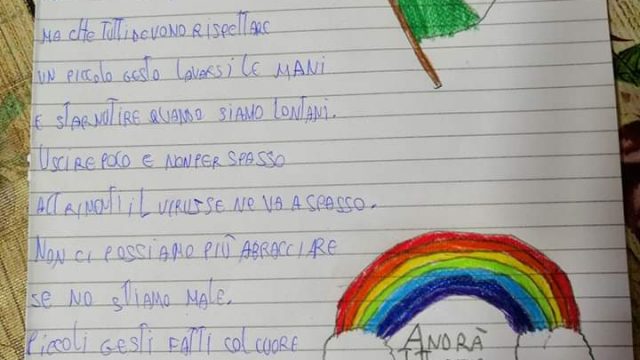 MA CHE TUTTI DEVONO RISPETTARE
UN PICCOLO GESTO LAVARSI LE MANI
E STARNUTIRE QUANDO SIAMO LONTANI.
USCIRE POCO E NON PER SPASSO
ALTRIMENTI IL VIRUS SE NE VA A SPASSO.
NON CI POSSIAMO PIÙ ABRACCIARE
SE NO STIAMO MALE.
PICCOLI GESTI FATTI COL CUORE
ANDRÀ